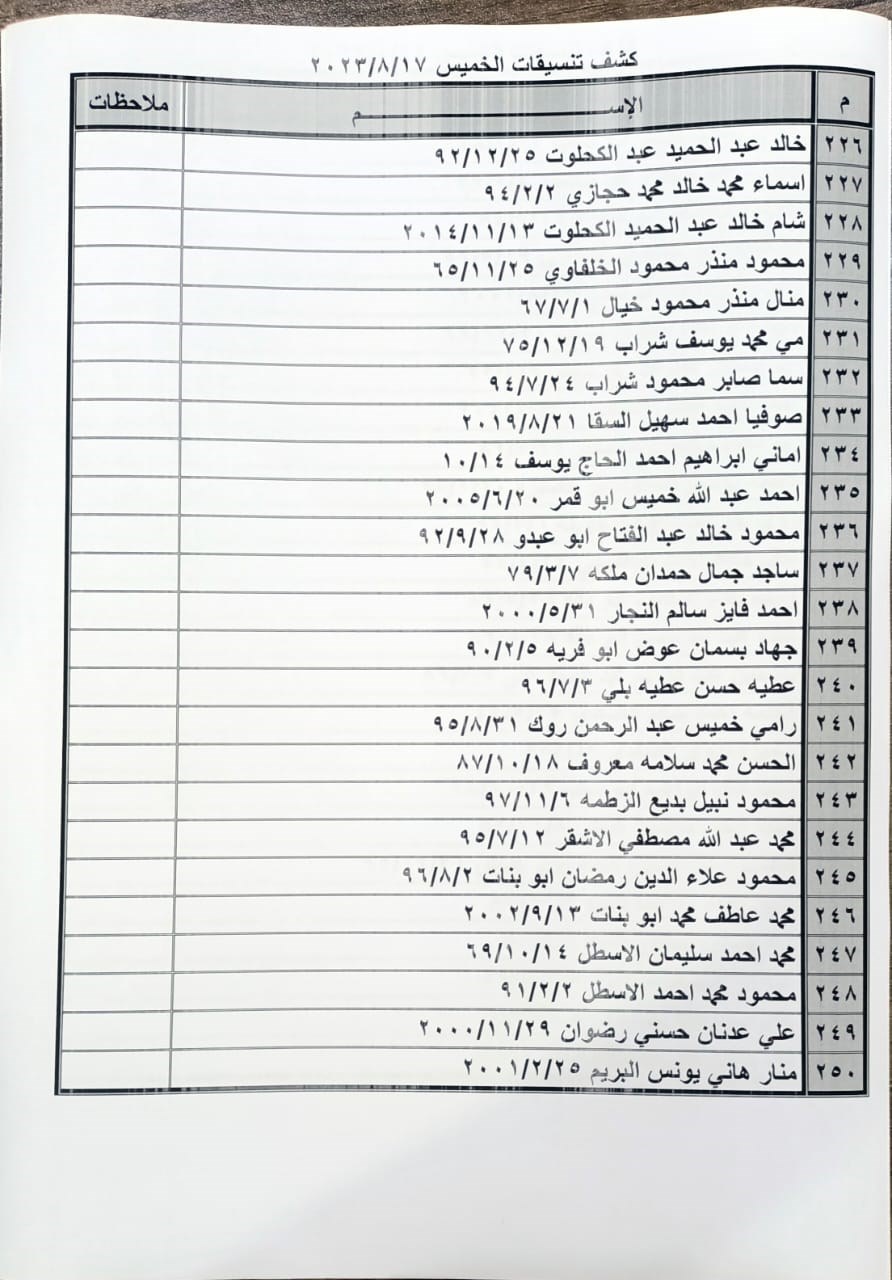 كشف تنسيقات الخميس ٢٠٢٣/٨/١٧
م الإســـــــــــم ملاحظات
٢٢٦ خالد عبد الحميد عبد الكحلوت ٩٢/١٢/٢٥
٢٢٧ اسماء محمد خالد محمد حجازي ٩٤/٢/٢
٢٢٨ شام خالد عبد الحميد الكحلوت ٢٠١٤/١١/١٣
٢٢٩ محمود منذر محمود الخلفاوي ٦٥/١١/٢٥
٢٣٠ منال منذر محمود خيال ٦٧/٧/١
٢٣١ مي محمد يوسف شراب ٧٥/١٢/١٩
٢٣٢ سما صابر محمود شراب ٩٤/٧/٢٤
٢٣٣ صوفيا احمد سهيل السقا ٢٠١٩/٨/٢١
٢٣٤ اماني ابراهيم احمد الحاج يوسف ١٠/١٤
٢٣٥ احمد عبد الله خميس ابو قمر ٢٠٠٥/٦/٢٠
٢٣٦ محمود خالد عبد الفتاح ابو عبدو ٩٢/٩/٢٨
٢٣٧ ساجد جمال حمدان ملكه ٧٩/٣/٧
٢٣٨ احمد فايز سالم النجار ٢٠٠٠/٥/٣١
٢٣٩ جهاد بسمان عوض ابو فريه ٩٠/٢/٥
٢٤٠ عطيه حسن عطيه بلي ٩٦/٧/٣
٢٤١ رامي خميس عبد الرحمن روك ٩٥/٨/٣١
٢٤٢ الحسن محمد سلامه معروف ٨٧/١٠/١٨
٢٤٣ محمود نبيل بديع الزطمه ٩٧/١١/٦
٢٤٤ محمد عبد الله مصطفي الاشقر ٩٥/٧/١٢
٢٤٥ محمود علاء الدين رمضان ابو بنات ٩٦/٨/٢
٢٤٦ محمد عاطف محمد ابو بنات ٢٠٠٢/٩/١٣
٢٤٧ محمد احمد سليمان الاسطل ٦٩/١٠/١٤
٢٤٨ محمود محمد احمد الاسطل ٩١/٢/٢
٢٤٩ علي عدنان حسني رضوان ٢٠٠٠/١١/٢٩
٢٥٠ منار هاني يونس البريم ٢٠٠١/٢/٢٥